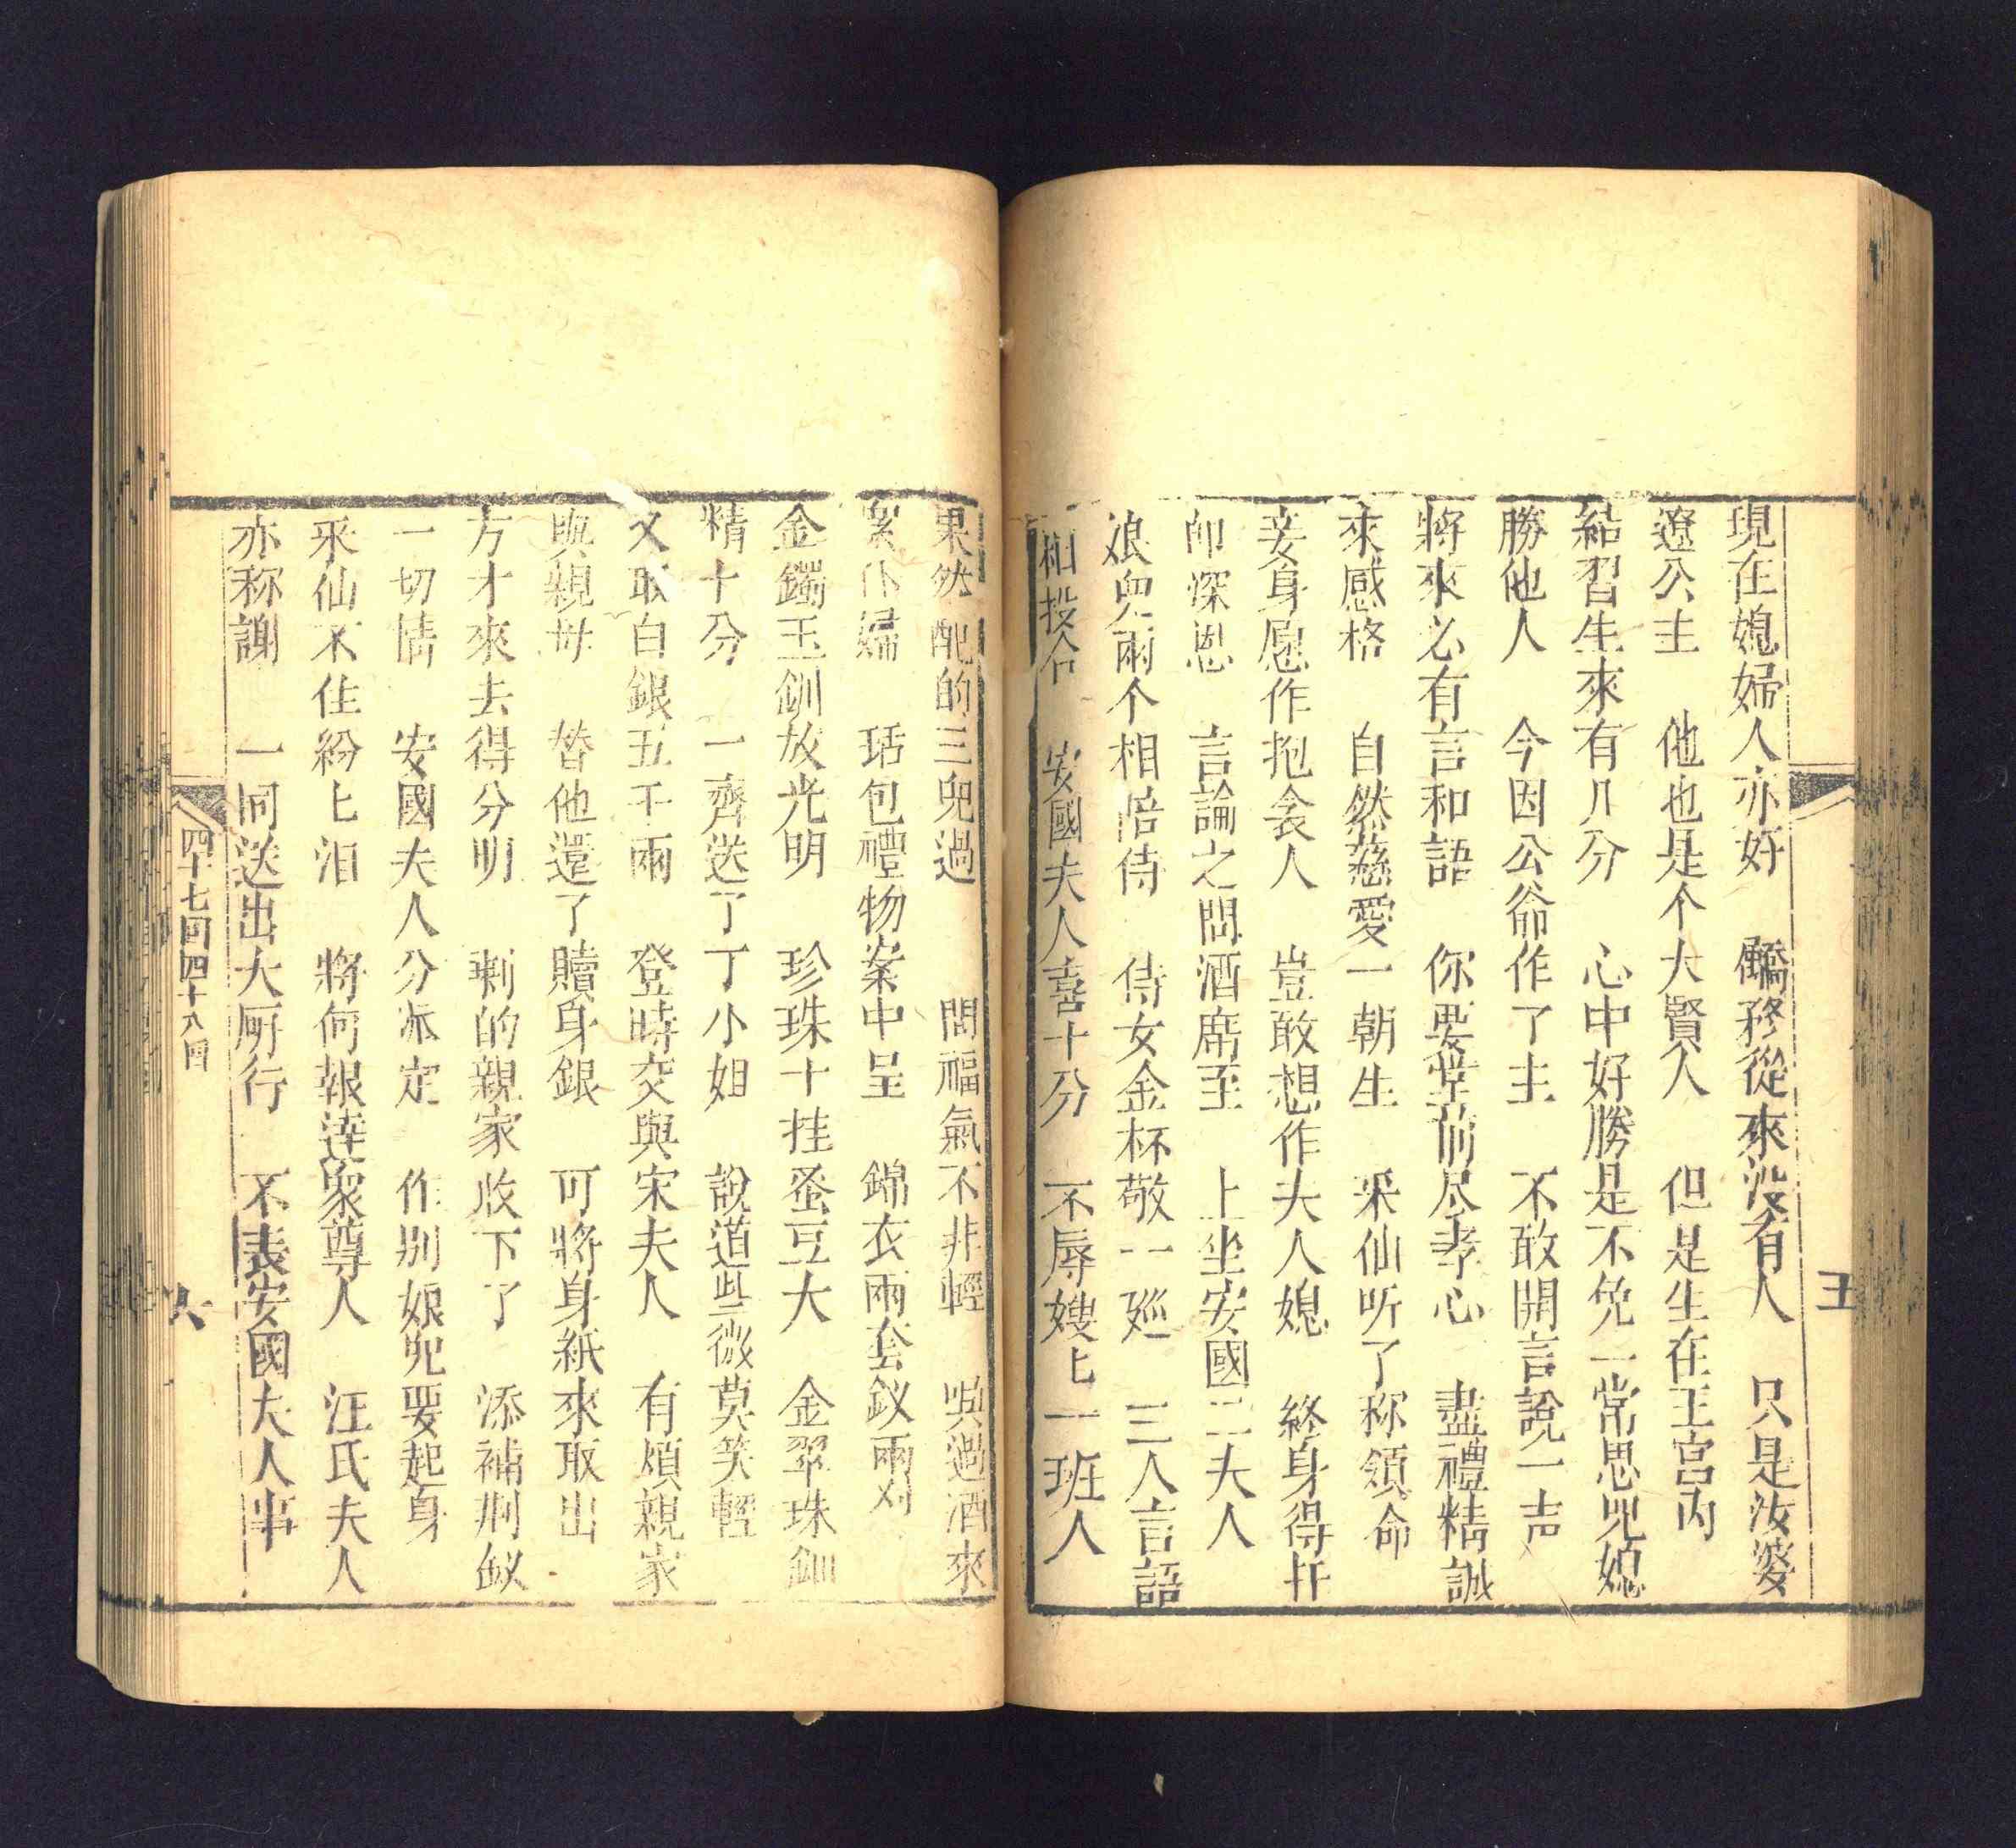 現在媳婦人亦好　驕矜從來沒有人　只是汝婆
遼公主　他也是个大賢人　但是生在王宮內
結習生來有几分　心中好勝是不免　常思兜媳
勝他人　今因公爺作了主　不敢開言說一声
將來必有言和語　你要堂前尽孝心　盡禮精誠
來感格　自然慈愛一朝生　采仙听了称領命
妾身愿作抱衾人　豈敢想作夫人媳　終身得托
卸深恩　言論之間酒席至　上坐安國二夫人
娘兒兩个相陪侍　侍女金杯敬一廵　三人言語
相投合　安國夫人喜十分　不辱嫂匕一班人
五
果然配的三兒過　問福氣不非輕　喫過酒來
衆仆婦　氈包禮物案中呈　錦衣兩套釵兩对
金鐲玉釧放光明　珍珠十挂蚕豆大　金翠珠釧
精十分　一齊送了丁小姐　說道些微莫笑輕
又取白銀五千兩　登時交與宋夫人　有煩親家
與親母　替他還了贖身銀　可將身紙來取出
方才來去得分明　剩的親家收下了　添補荆釵
一切情　安國夫人分派定　作别娘兒要起身
采仙不住紛匕泪　將何報達衆尊人　汪氏夫人
亦称謝　一同送出大厨行　不表安國夫人事
四十七囘四十八囘
六